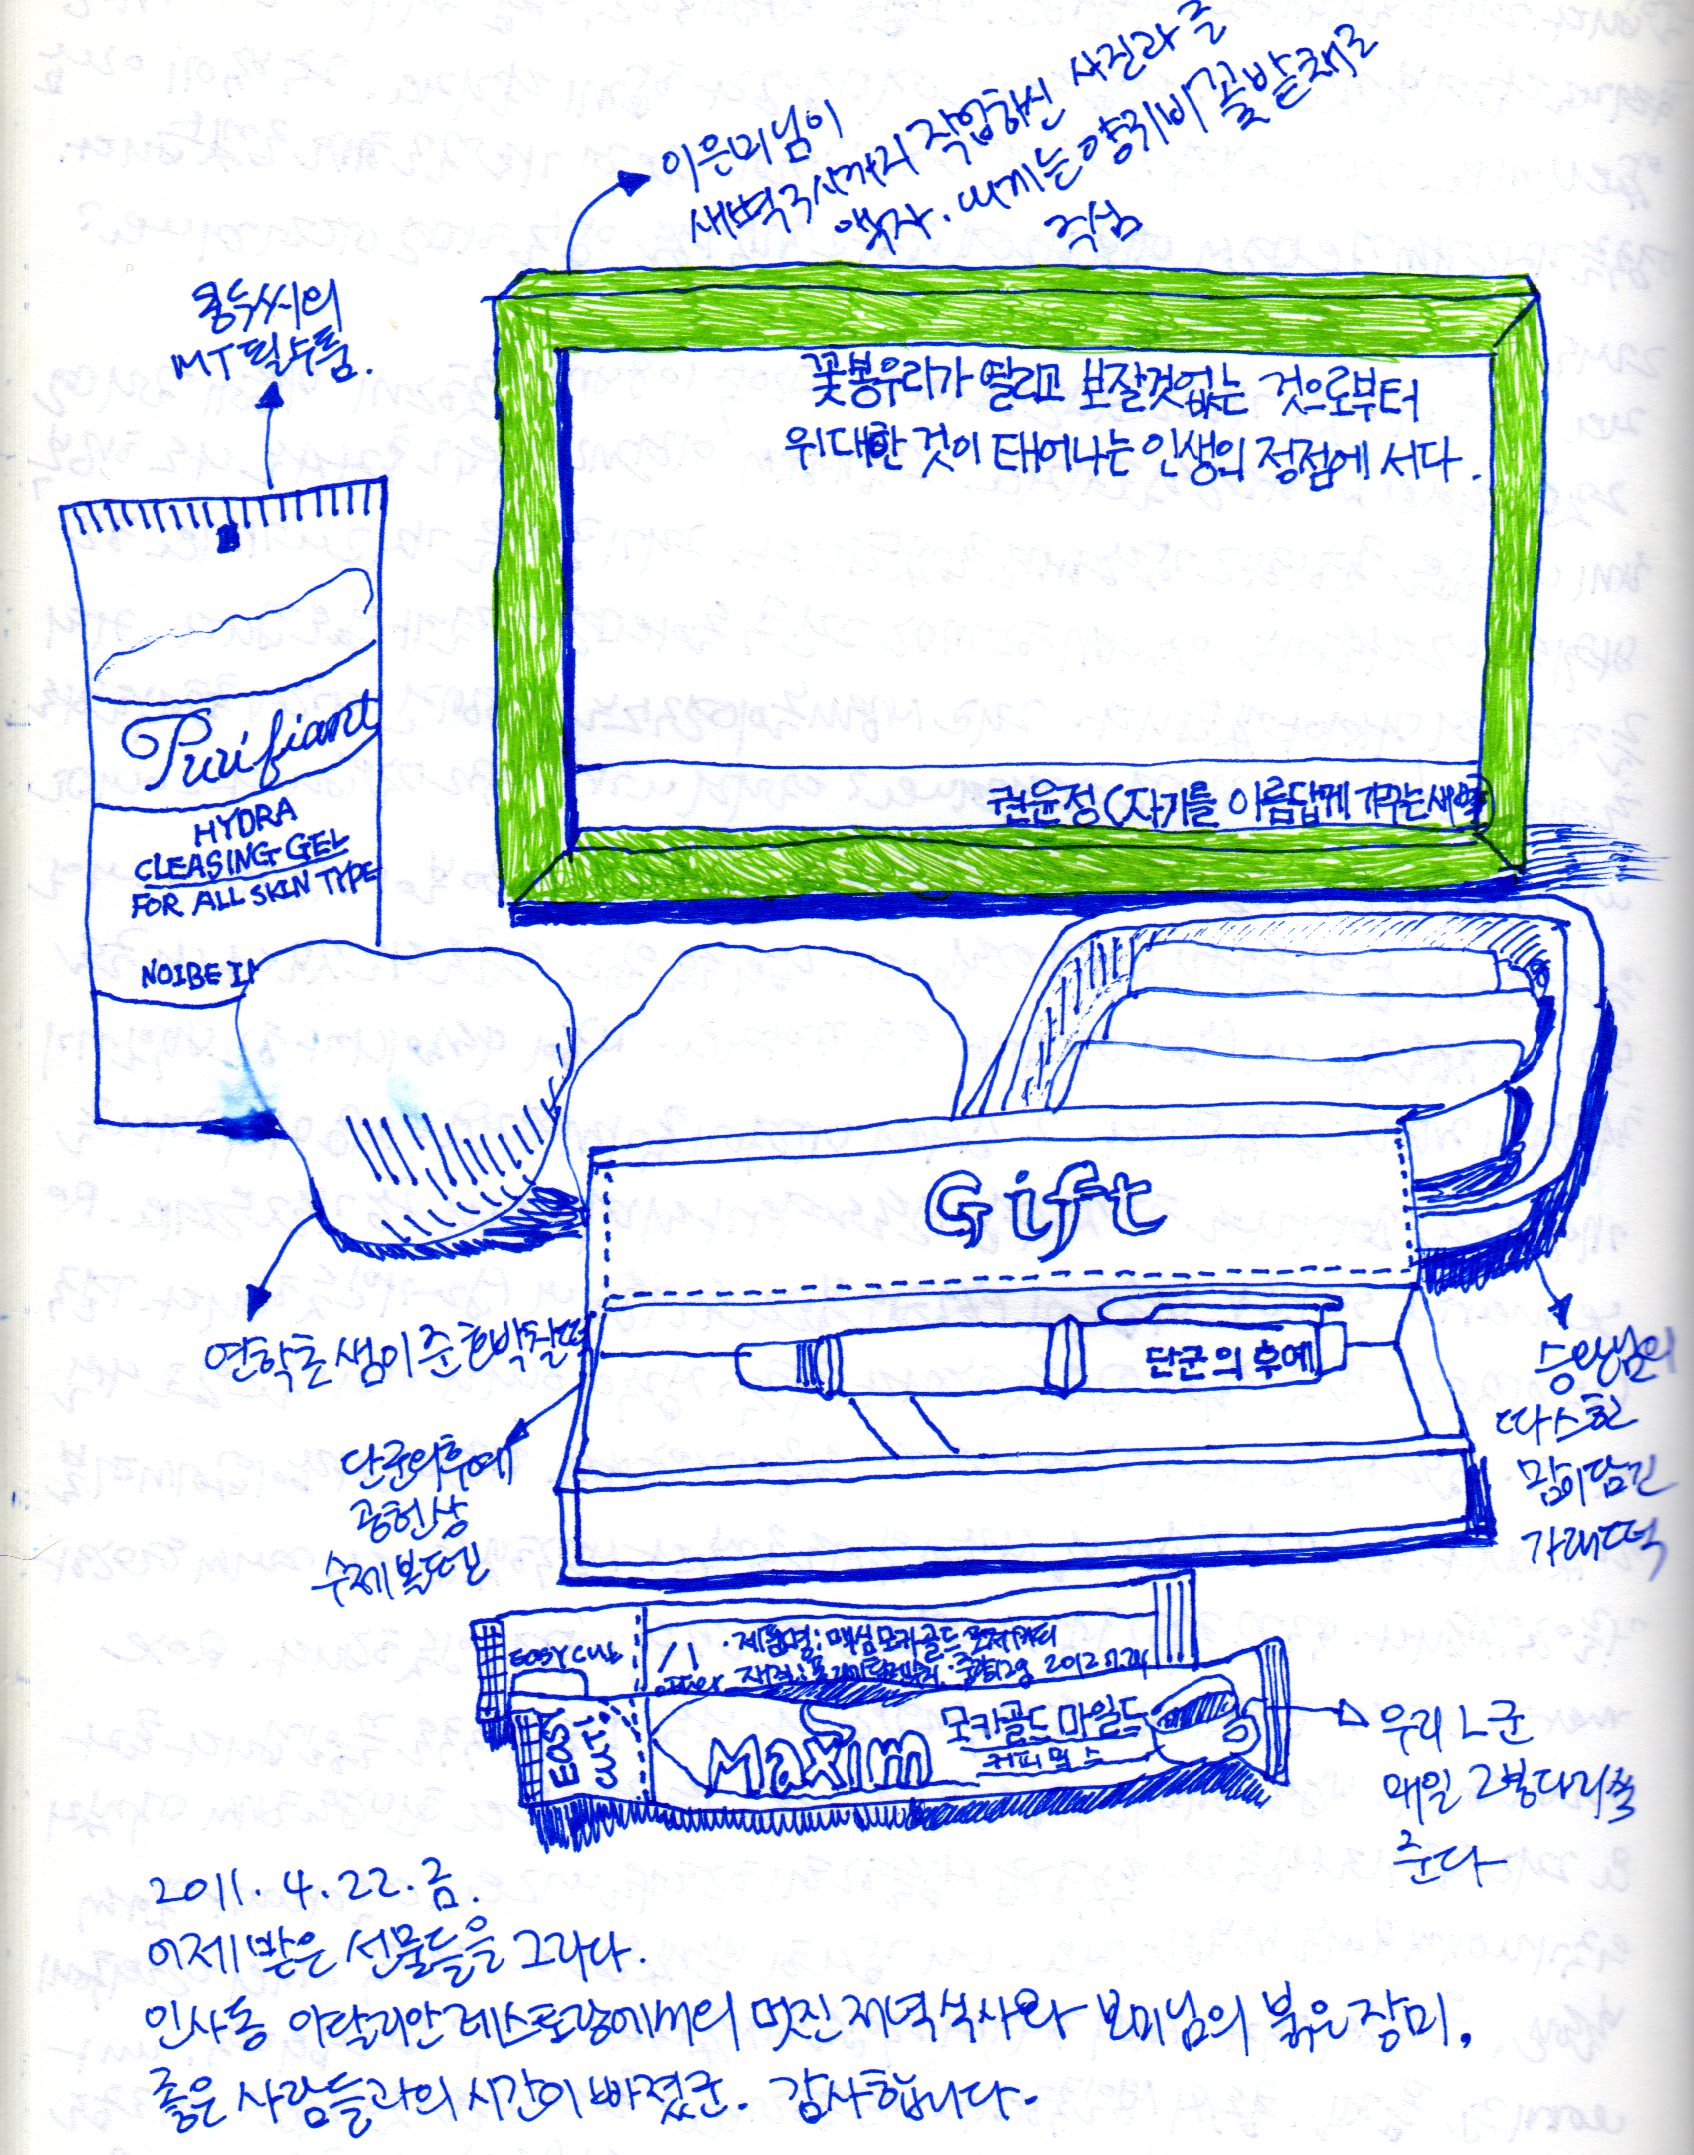 이은미님이
새벽 3시까지 작업하신 사진과 글
액자. 내게는 양귀비 꽃밭채로
주심
콩두씨의
MT필수품.
꽃봉우리가 열리고 보잘것없는 것으로부터
위대한 것이 태어나는 인생의 정점에 서다.
권윤정(자기를 아름답게 가꾸는 새벽)
Purifiant
HYDRA
CLEASING GEL
FOR ALL SKIN TYPE
NOIBE IN
Gift
단군의 후예
연학초 쌤이 준 호박찰떡
승완님의
따스한
맘이 담긴
가래떡
단군의후예
공헌상
수제 볼펜
EASY CUT
·제품명: 맥심모카골드
2012
EASY
CUT!
Maxim
모카골드 마일드
커피믹스
우리 L군
매일 2봉다리씩
준다
2011. 4. 22. 금.
어제 받은 선물들을 그리다.
인사동 이탈리안 레스토랑에서의 멋진 저녁식사와 보미님의 붉은 장미,
좋은 사람들과의 시간이 빠졌군. 감사합니다.